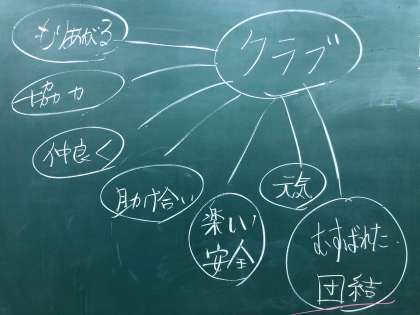 クラブ
もりあがる
協力
仲良く
助け合い
楽しい
安全
元気
むすばれた
団結